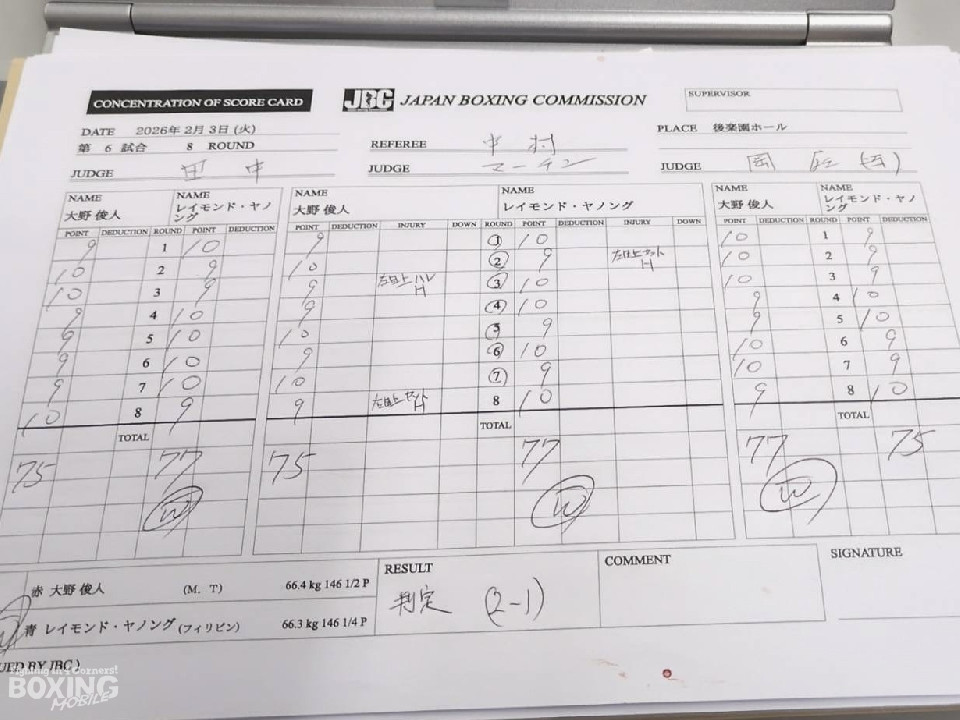 CONCENTRATION OF SCORE CARD
JBC JAPAN BOXING COMMISSION
SUPERVISOR
DATE 2026年 2月 3日 (火)
第 6 試合 8 ROUND
REFEREE 中村
PLACE 後楽園ホール
JUDGE 田中
JUDGE マーチン
JUDGE
NAME 大野 俊人
NAME レイモンド・ヤノング
NAME 大野 俊人
NAME レイモンド・ヤノング
NAME 大野 俊人
NAME レイモンド・ヤノング
POINT DEDUCTION ROUND POINT DEDUCTION
POINT DEDUCTION INJURY DOWN ROUND POINT DEDUCTION INJURY DOWN
POINT DEDUCTION ROUND POINT DEDUCTION
9 1 10
10 2 9
10 3 9
9 4 10
9 5 10
9 6 10
9 7 10
10 8 9
TOTAL
75 77
W
9 1 10
10 2 9 左目上カット
9 左目上ハレ 3 10
9 4 10
10 5 9
9 6 10
10 7 9
9 8 10
TOTAL
75 77
W
10 1 9
10 2 9
10 3 9
9 4 10
9 5 10
10 6 9
10 7 9
9 8 10
TOTAL
77 75
W
赤 大野 俊人 (M. T) 66.4 kg 146 1/2 P
青 レイモンド・ヤノング (フィリピン) 66.3 kg 146 1/4 P
RESULT
判定 (2-1)
COMMENT
SIGNATURE
UED BY JBC )
Fighting in 4 Corners!
BOXING
MOBILE